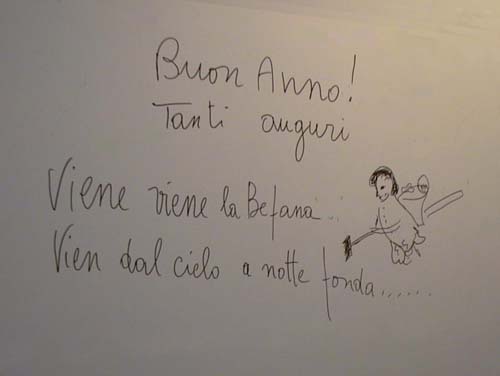 Buon Anno!
Tanti auguri
Viene viene la Befana...
Vien dal cielo a notte fonda......